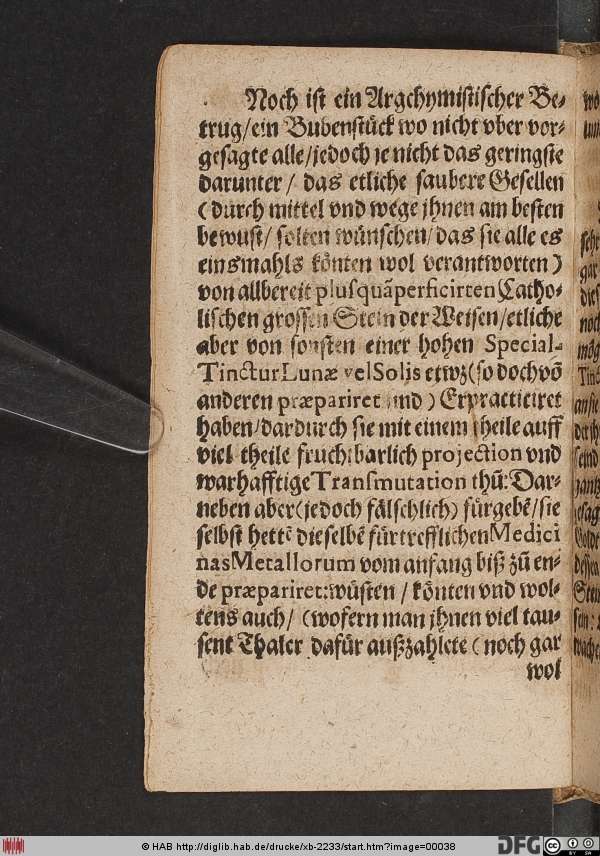 Noch ist ein Argchymistischer Be-
trug/ein Bubenstück wo nicht vber vor-
gesagte alle/jedoch je nicht das geringste
darunter / das etliche saubere Gesellen
(durch mittel vnd wege jhnen am besten
bewust/ solten wünschen/das sie alle es
einsmahls könten wol verantworten)
von allbereit plusquāperficirten Catho-
lischen grossen Stein der Weisen/etliche
aber von sonsten einer hohen Special-
Tinctur Lunæ vel Solis etwz (so doch võ
anderen præpariret vnd) Erpracticiret
haben/dardurch sie mit einem theile auff
viel theile fruchtbarlich projection vnd
warhafftige Transmutation thū: Dar-
neben aber (jedoch fälschlich) fürgebē/sie
selbst hettē dieselbē fürtrefflichen Medici
nas Metallorum vom anfang biß zū en-
de præpariret: wüsten / könten vnd wol-
tens auch/ (wofern man jhnen viel tau-
sent Thaler dafür außzahlete (noch gar
wol
© HAB http://diglib.hab.de/drucke/xb-2233/start.htm?image=00038
DFG
cc
BY SA